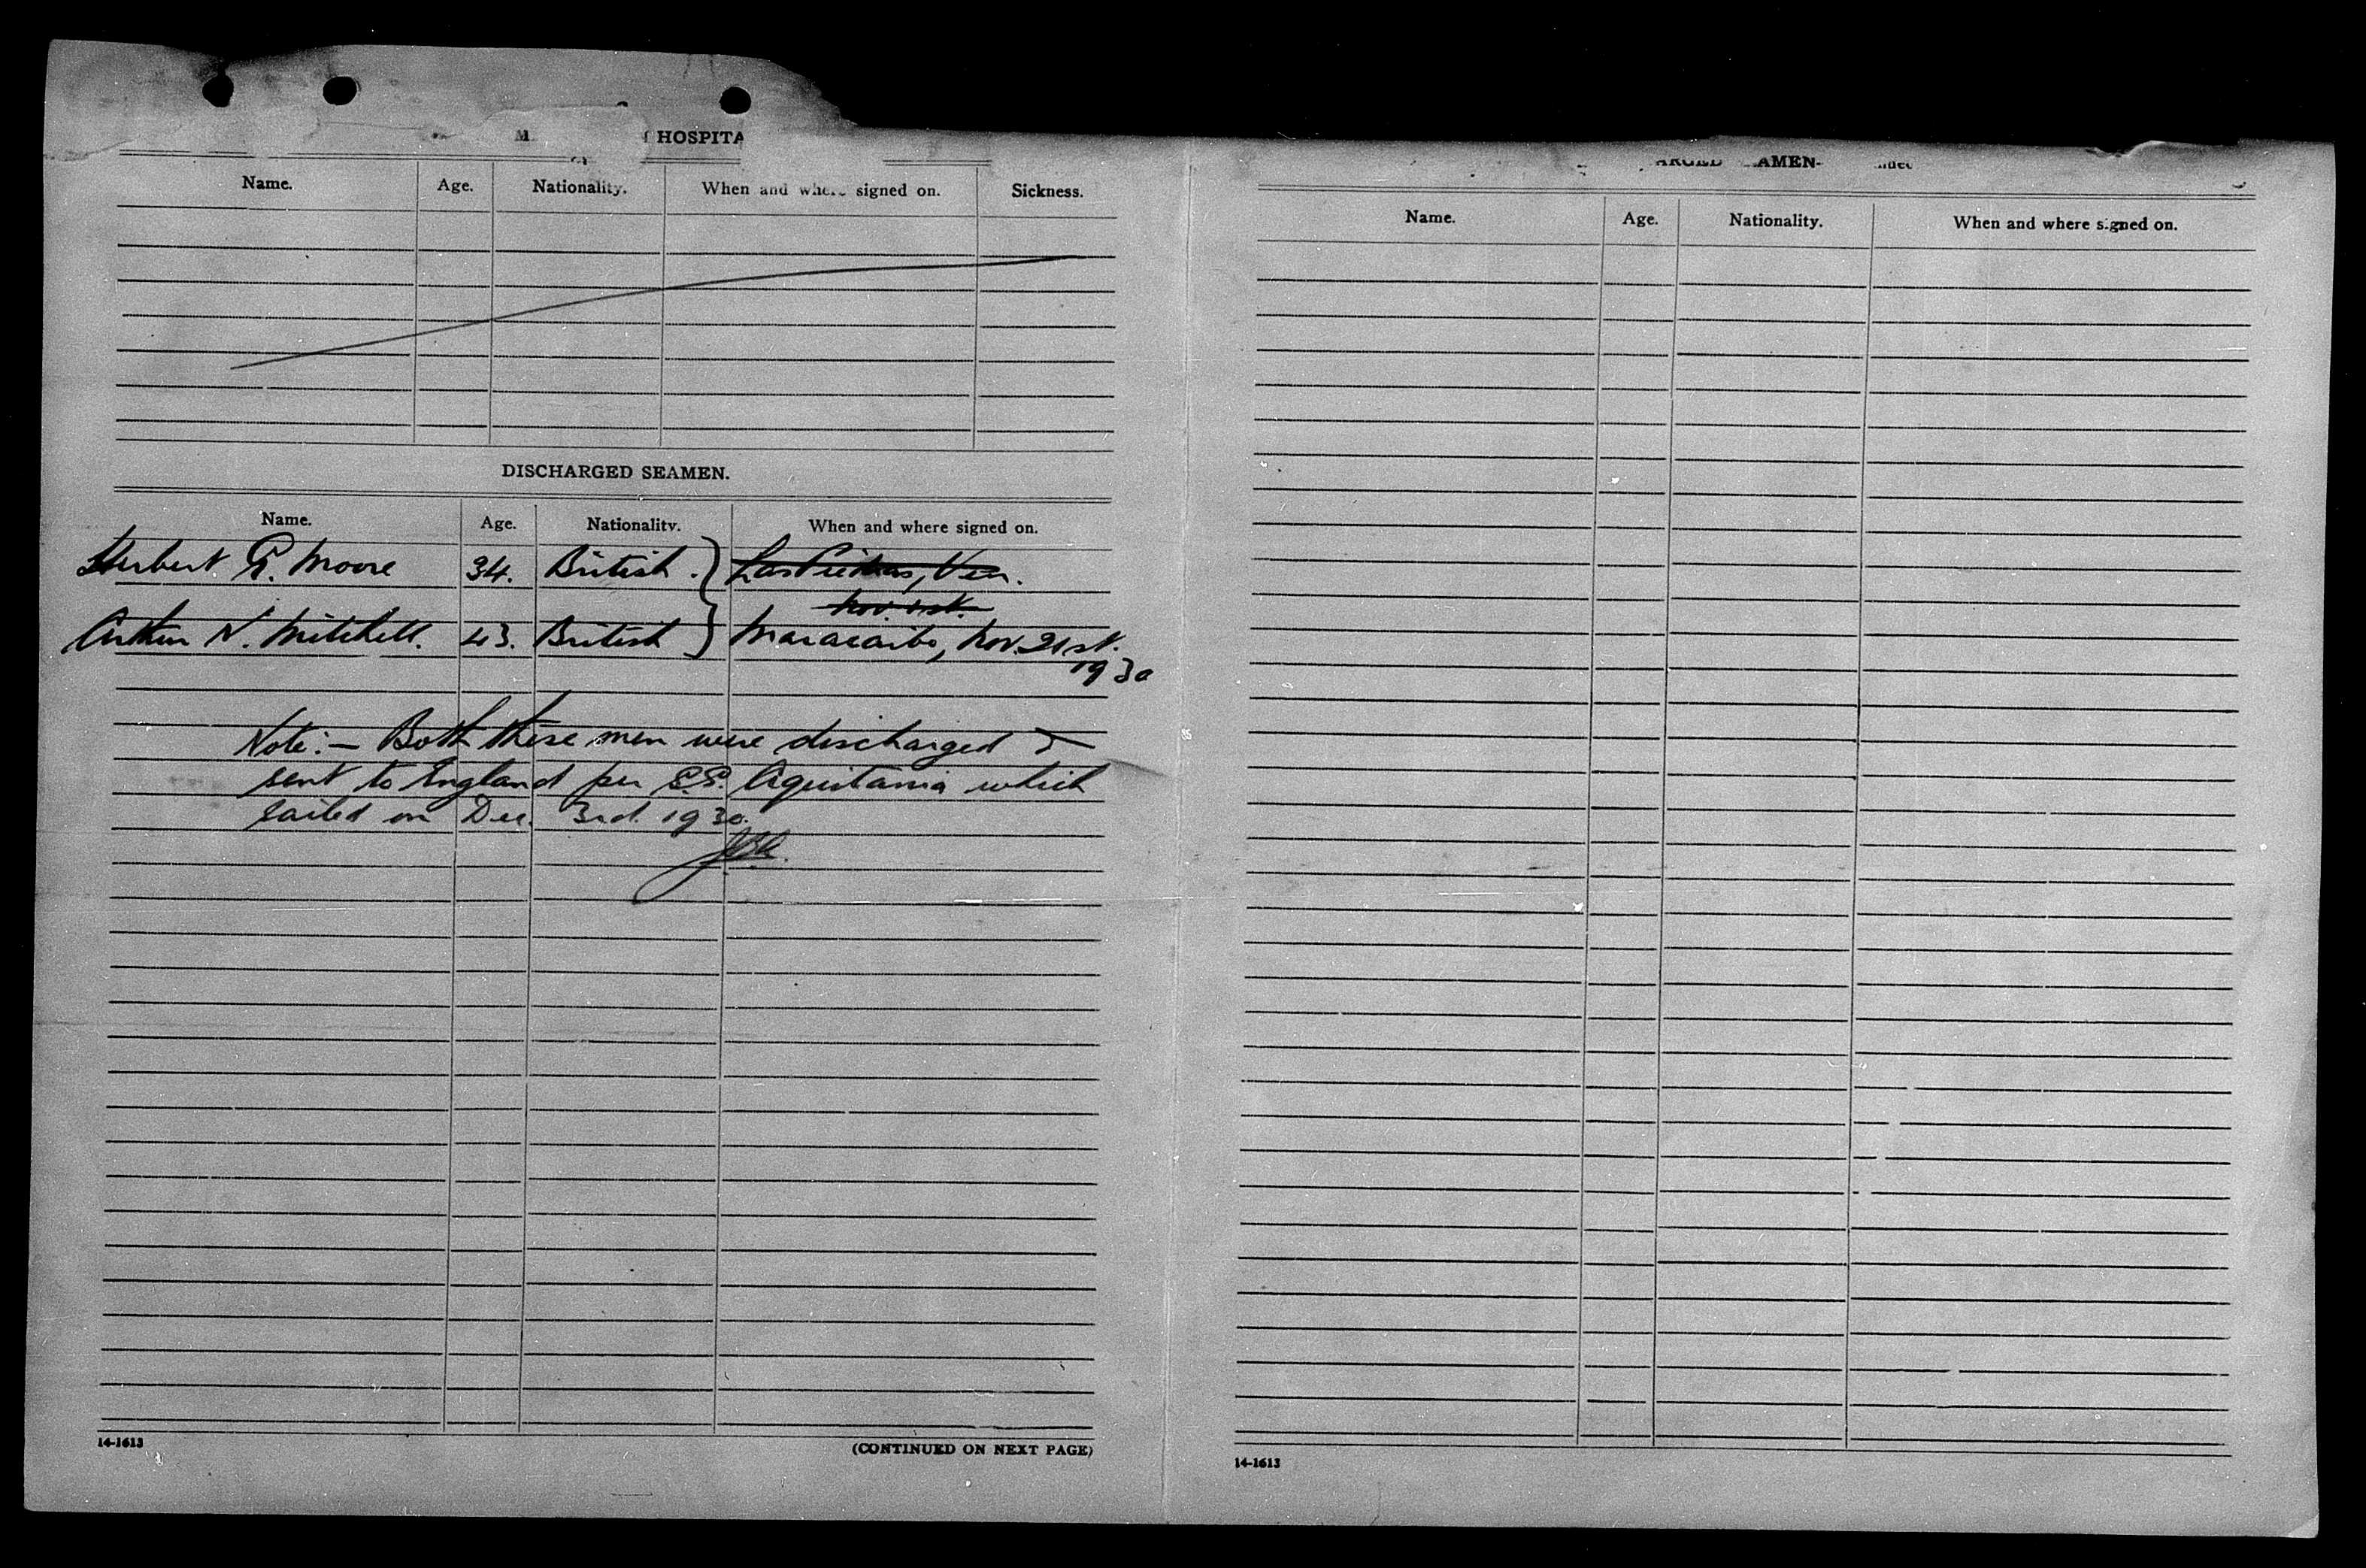 HOSPITA
Name. Age. Nationality. When and where signed on. Sickness.
DISCHARGED SEAMEN.
Name. Age. Nationality. When and where signed on.
Herbert G. Moore 34. British. Las Piedras, Ven.
Nov. 21st.
Arthur N. Mitchell. 43. British Maracaibo, Nov. 21st.
1930
Note:- Both these men were discharged &
sent to England per S.S. Aquitania which
sailed on Dec. 3rd. 1930.
14-1613
(CONTINUED ON NEXT PAGE)
AMEN-
Name. Age. Nationality. When and where signed on.
14-1613